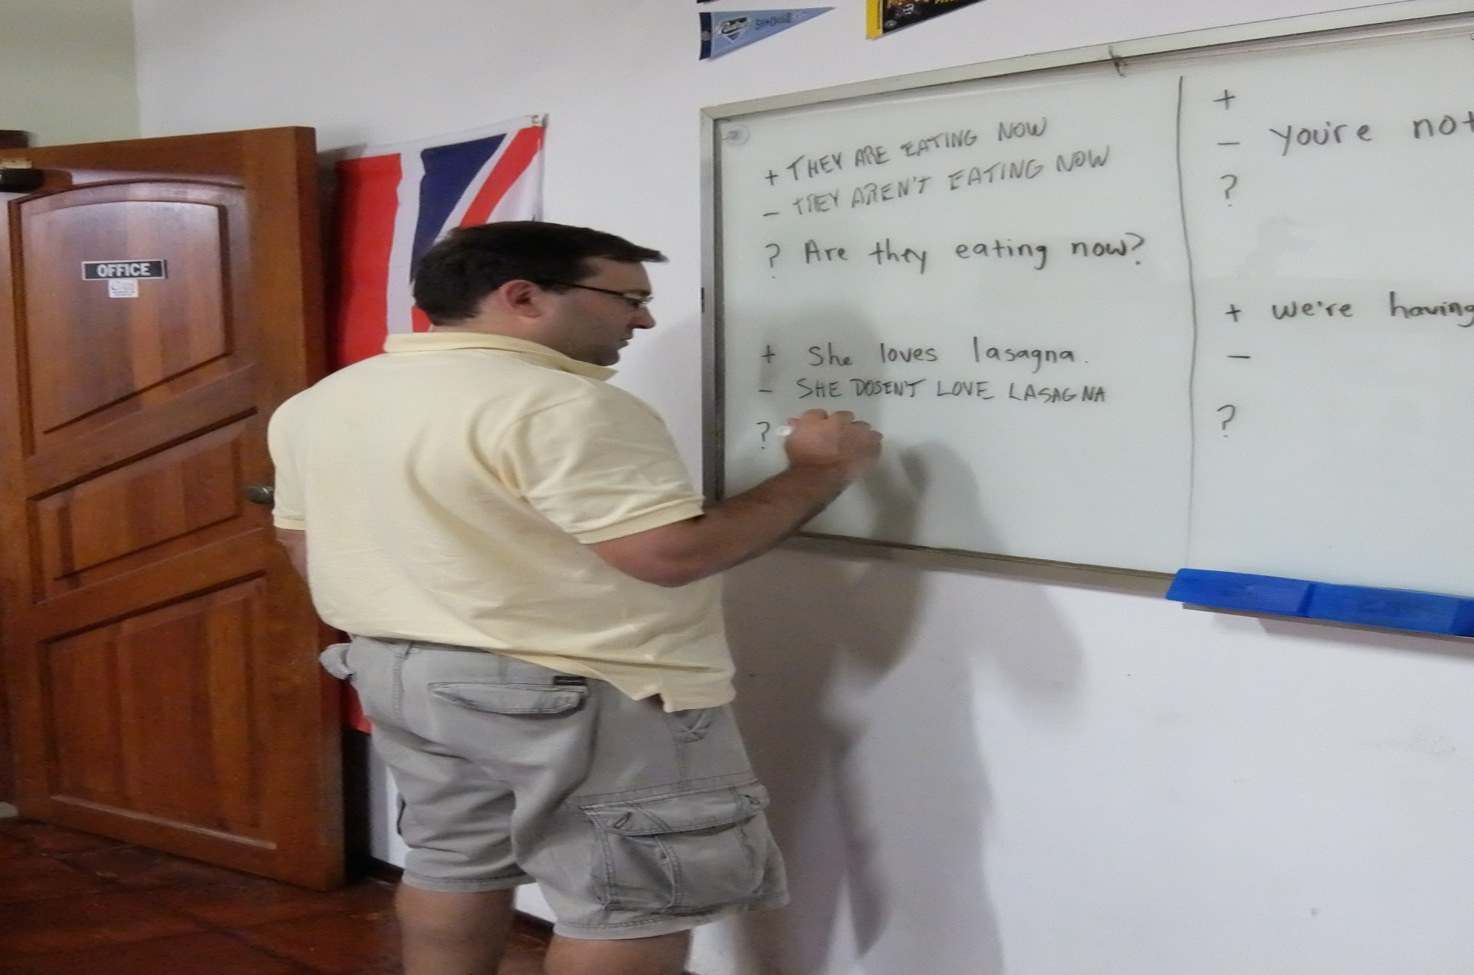 OFFICE
+ THEY ARE EATING NOW
- THEY AREN'T EATING NOW
? Are they eating now?
+ She loves lasagna.
- SHE DOSEN'T LOVE LASAGNA
?
+
- you're not
?
+ we're having
-
?